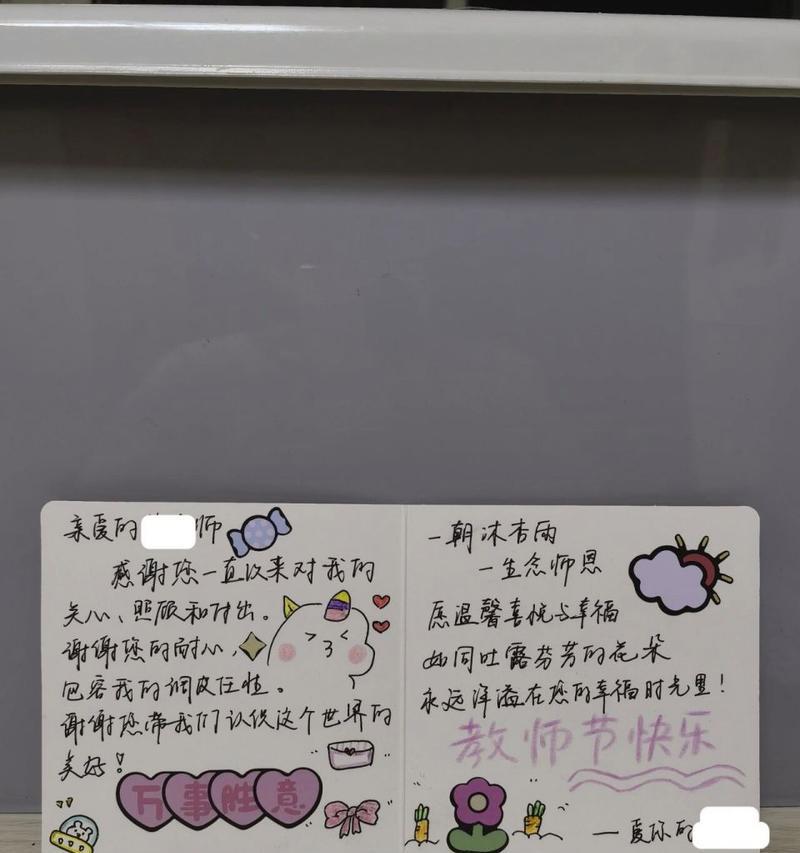 亲爱的 师
感谢您一直以来对我的
关心、照顾和付出。
谢谢您的耐心,
包容我的调皮任性。
谢谢您带我们认识这个世界的
美好!
万事胜意
一朝沐杏雨
一生念师恩
愿温馨喜悦与幸福
如同吐露芬芳的花朵
永远洋溢在您的幸福时光里!
教师节快乐
—爱你的